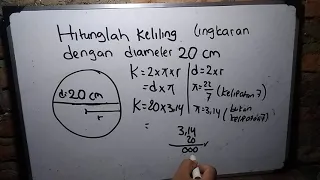 Hitunglah Keliling lingkaran
dengan diameter 20 cm
d=20 cm
r
K = 2 x π x r
= d x π
K = 20 x 3,14
=
d = 2 x r
π = 22/7 (kelipatan 7)
π = 3,14 (bukan kelipatan 7)
3,14
20
000